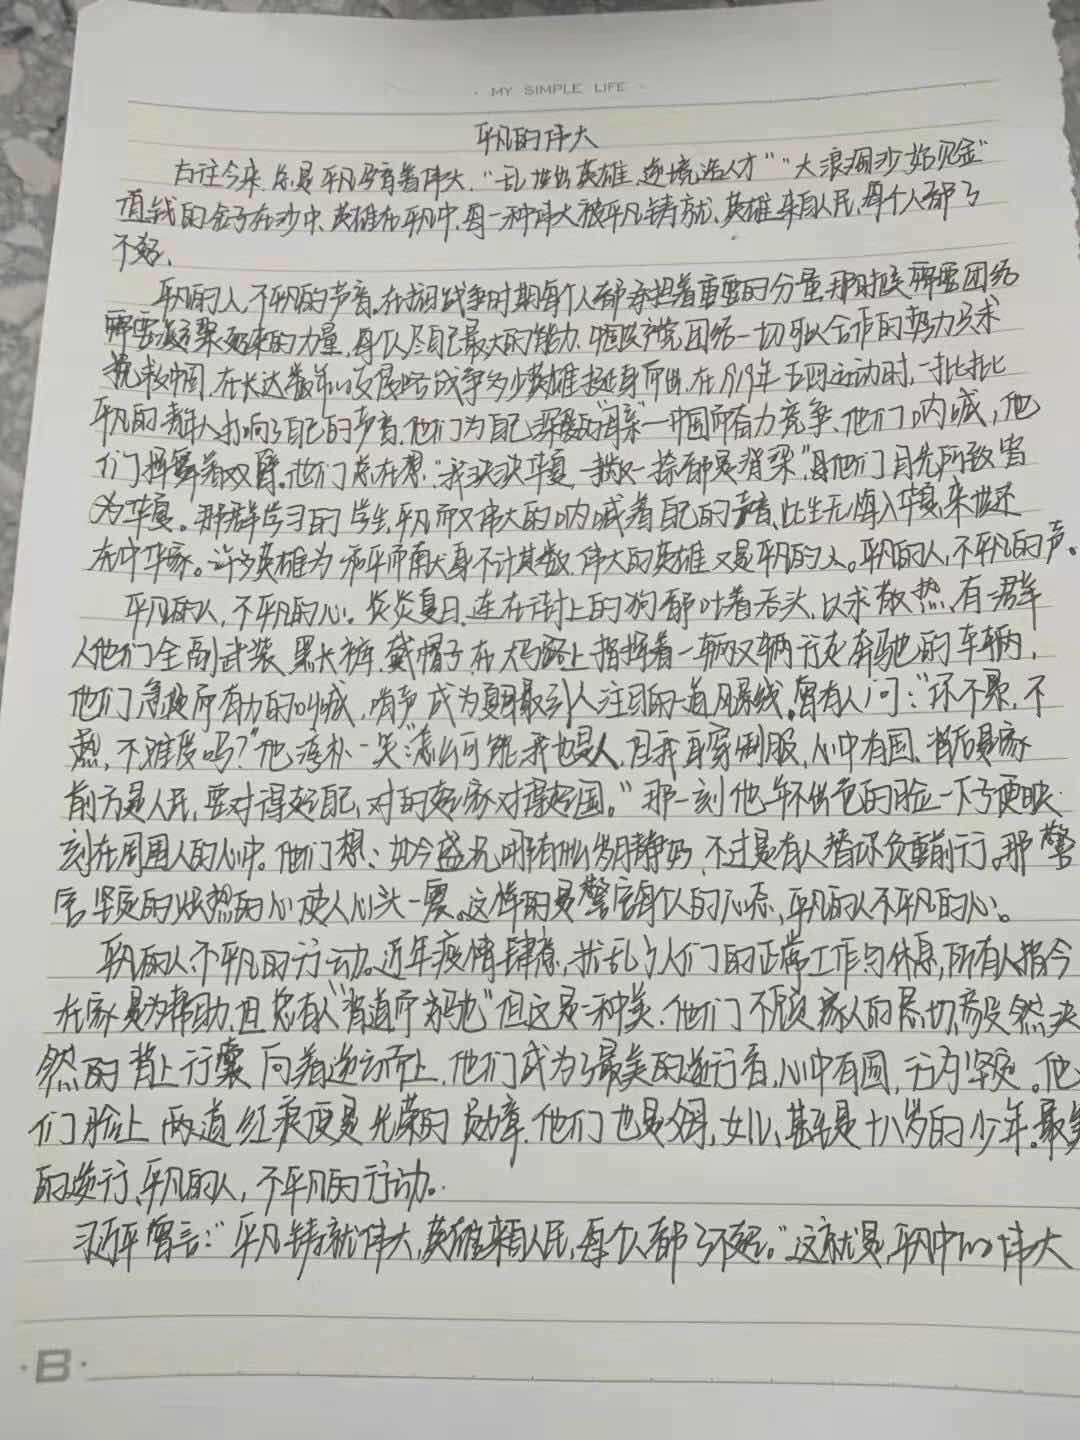 MY SIMPLE LIFE
平凡的伟大
古往今来,总是平凡孕育着伟大,"乱世出英雄,逆境造人才""大浪淘沙始见金"
值钱的金子在沙中,英雄在平凡中,每一种伟大被平凡铸就,英雄来自人民,每个人都了
不起,
平凡的人,不平凡的声音。在抗日战争时期每个人都承担着重要的分量,那时候需要团结
需要凝聚起来的力量,每个人尽自己最大的能力,中国共产党团结一切可以合作的势力只求
拯救中国,在长达数年的反侵略战争多少英雄挺身而出,在1919年五四运动时,一批批
平凡的青年人打响了自己的声音,他们为自己深爱的"母亲"一中国而奋力竞争,他们呐喊,他
们挥舞着双臂。他们总在想"我泱泱华夏,一撇一捺都是脊梁"是他们
为华夏。那群学习的学生,平凡而又伟大的呐喊着自己的声音,此生无悔入华夏,来世还
在中华家。许多英雄为和平而献身不计其数,伟大的英雄又是平凡的人。平凡的人,不平凡的声。
平凡的人,不平凡的心。炎炎夏日,连在街上的狗都吐着舌头,以求散热,有一群
人他们全副武装,黑长裤,戴帽子在大马路上指挥着一辆又一辆行走奔驰的车辆,
他们急促而有力的叫喊,哨声成为夏日最引人注目的一道风景线。曾有人问:"你不累,不
热,不难受吗?"他淳朴一笑"怎么可能,我也是人,但我身穿制服,心中有国,背后是家
前方是人民,要对得起自己,对的起家对得起国。"那一刻他年轻的脸一下子便映
刻在周围人的心中。他们想:如今盛况哪有什么岁月静好,不过是有人替你负重前行。那警
官坚定的炽热的心使人心头一震。这样的是警官每个人的心态,平凡的人不平凡的心。
平凡的人不平凡的行动。近年疫情肆意,扰乱了人们的正常工作与休息,所有人皆令
在家是为帮助,但总有人"背道而驰"但这是一种美,他们不顾家人的急切毅然决
然的背上行囊向着逆方而上,他们成为了最美的逆行者,心中有国,行为坚定。他
们脸上两道红痕便是光荣的勋章,他们也是父母,女儿,甚至是十八岁的少年。最美
的逆行,平凡的人,不平凡的行动。
习近平曾言:"平凡铸就伟大,英雄来自人民,每个人都了不起。"这就是,平凡中的伟大
B